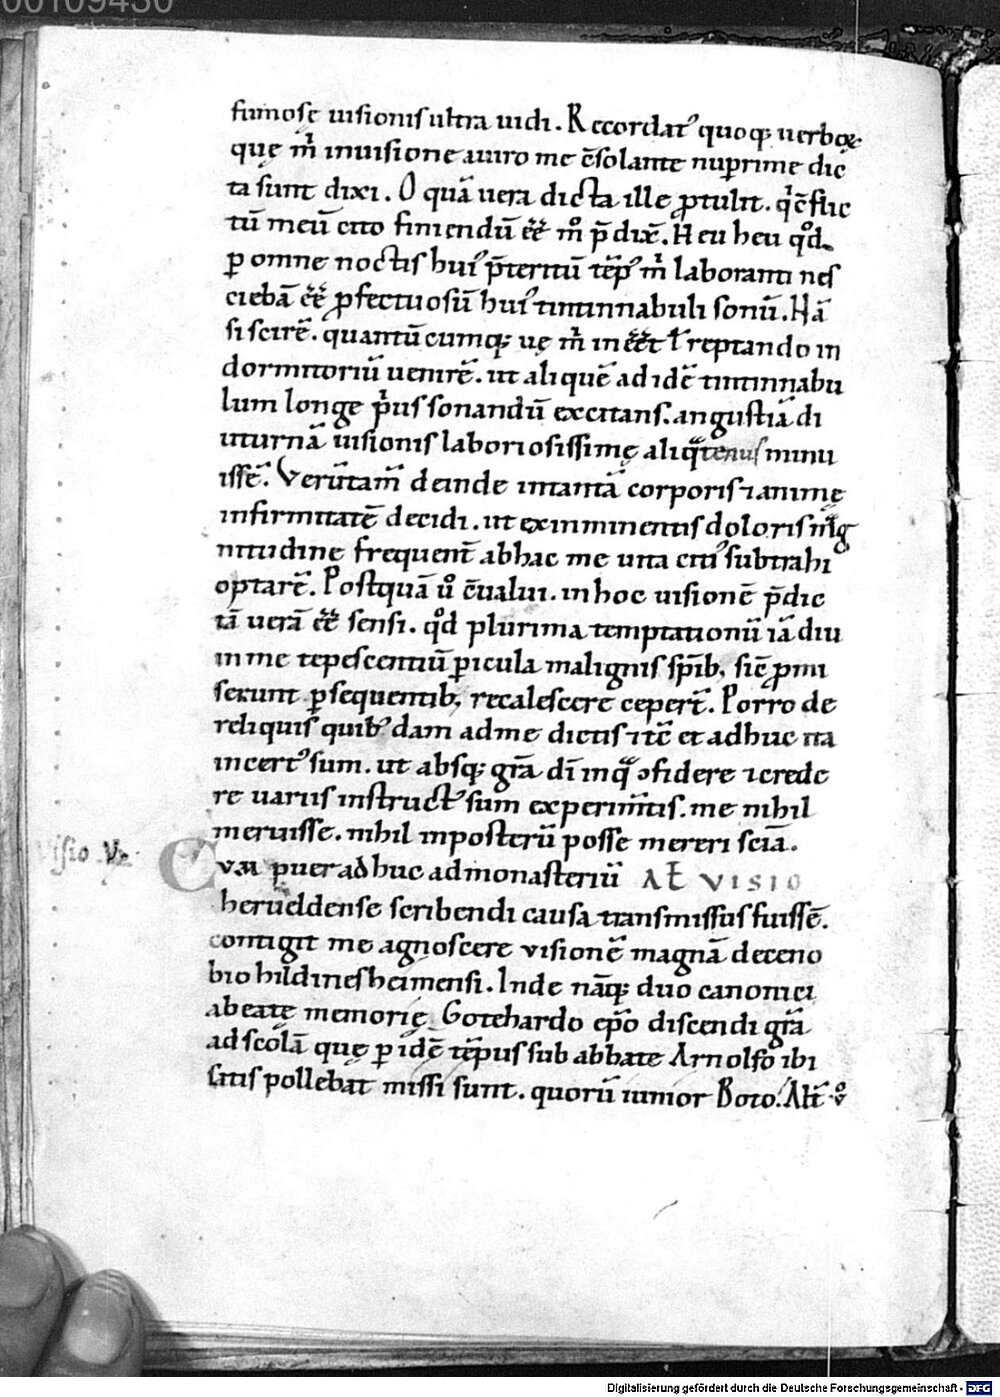 00109430
fumosę uisionis ultra uidi. Recordat᷒ quoq; uerboꝝ
quę m̍ inuisione auiro me c̄solante nuprime dic
ta sunt dixi. O quā uera dicta ille ꝓtulit. q̍ c̄flic
tū meū cito finiendū ēē m̊ p̄dix̄. Heu heu qd̊
ꝑ omne noctis hui᷒ p̄teritū tēp᷒ m̍ laboranti nes
ciebā ēē ꝓfectuosū hui᷒ tintinnabuli sonū. Nā
si scirē. quantūcumq; uę m̍ inēēt ł reptando in
dormitoriū uenirē. ut aliquē ad idē tintinnabu
lum longe p̍us sonandū excitans. angustiā di
uturnā uisionis laboriosissimę aliqᵃtenus minu
issē. Verūtam̄ deinde intantā corporis ⁊ animę
infirmitatē decidi. ut ex imminentis doloris mᵃg
nitudine frequent̄ abhac me uita citi᷒ subtrahi
optarē. Postquā ů c̄ualui. in hoc uisionē p̄dic
tā uerā ēē sensi. qd̊ plurima temptationū iā diu
in me tepescentiū ꝑicula malignis sp̄ib; sic̄ ꝓmi
serunt ꝑsequentib; recalescere ceper̄t. Porro de
reliquis quib᷒dam adme dictis it̄c et adhuc ita
incert᷒ sum. ut absq; gr̄a dī inqᵃ ↄfidere ⁊ crede
re uariis instruct᷒ sum experim̄tis. me nihil
meruisse. nihil inposterū posse mereri sciā.
isio .V.
Cvm puer adhuc admonasteriū Al̄t VISIO
herueldense scribendi causa transmissus fuissē.
contigit me agnoscere visionē magnā deceno
bio hildinesheimensi. Inde nāq; duo canonici
abeatę memorię Gotehardo ep̄o discendi gr̄a
ad scolā quę ꝑ idē tēpus sub abbate Arnolfo ibi
satis pollebat missi sunt. quorū iunior Boto. Alt̄ ů
Digitalisierung gefördert durch die Deutsche Forschungsgemeinschaft - DFG